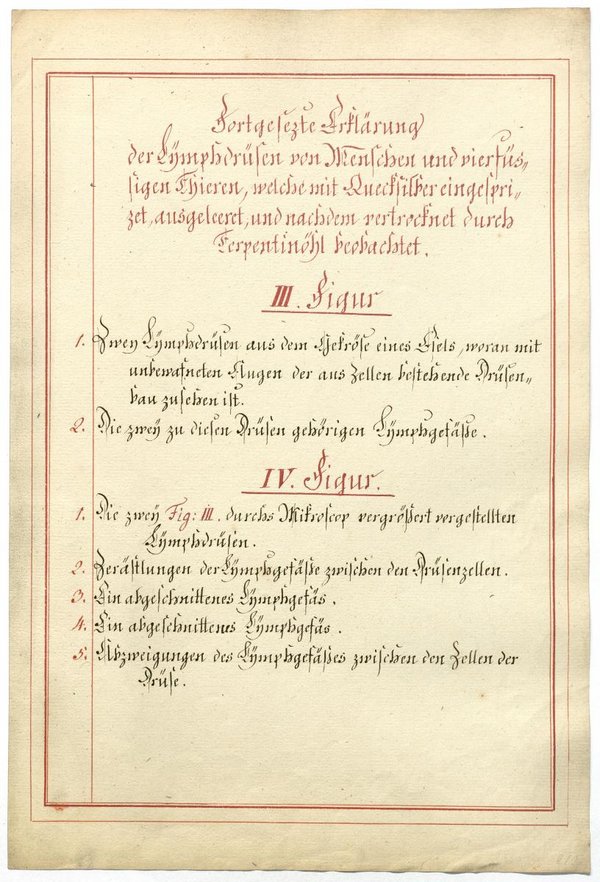 Fortgesezte Erklärung
der Lÿmphdrüsen von Menschen und vierfüs-
sigen Thieren, welche mit Quecksilber eingespri-
zet, ausgeleeret, und nachdem vertrocknet durch
Terpentinöhl beobachtet.
III. Figur
1. Zweÿ Lÿmphdrüsen aus dem Gekröse eines Esels, woran mit
unbewafneten Augen der aus Zellen bestehende Drüsen-
bau zusehen ist.
2. Die zweÿ zu diesen Drüsen gehörigen Lÿmphgefäße.
IV. Figur.
1. Die zweÿ Fig: III. durchs Mikroscop vergrößert vorgestellten
Lÿmphdrüsen.
2. Zerästlungen der Lÿmphgefäße zwischen den Drüsenzellen.
3. Ein abgeschnittenes Lÿmphgefäs.
4. Ein abgeschnittenes Lÿmphgefäs.
5. Abzweigungen des Lÿmphgefäßes zwischen den Zellen der
Drüse.